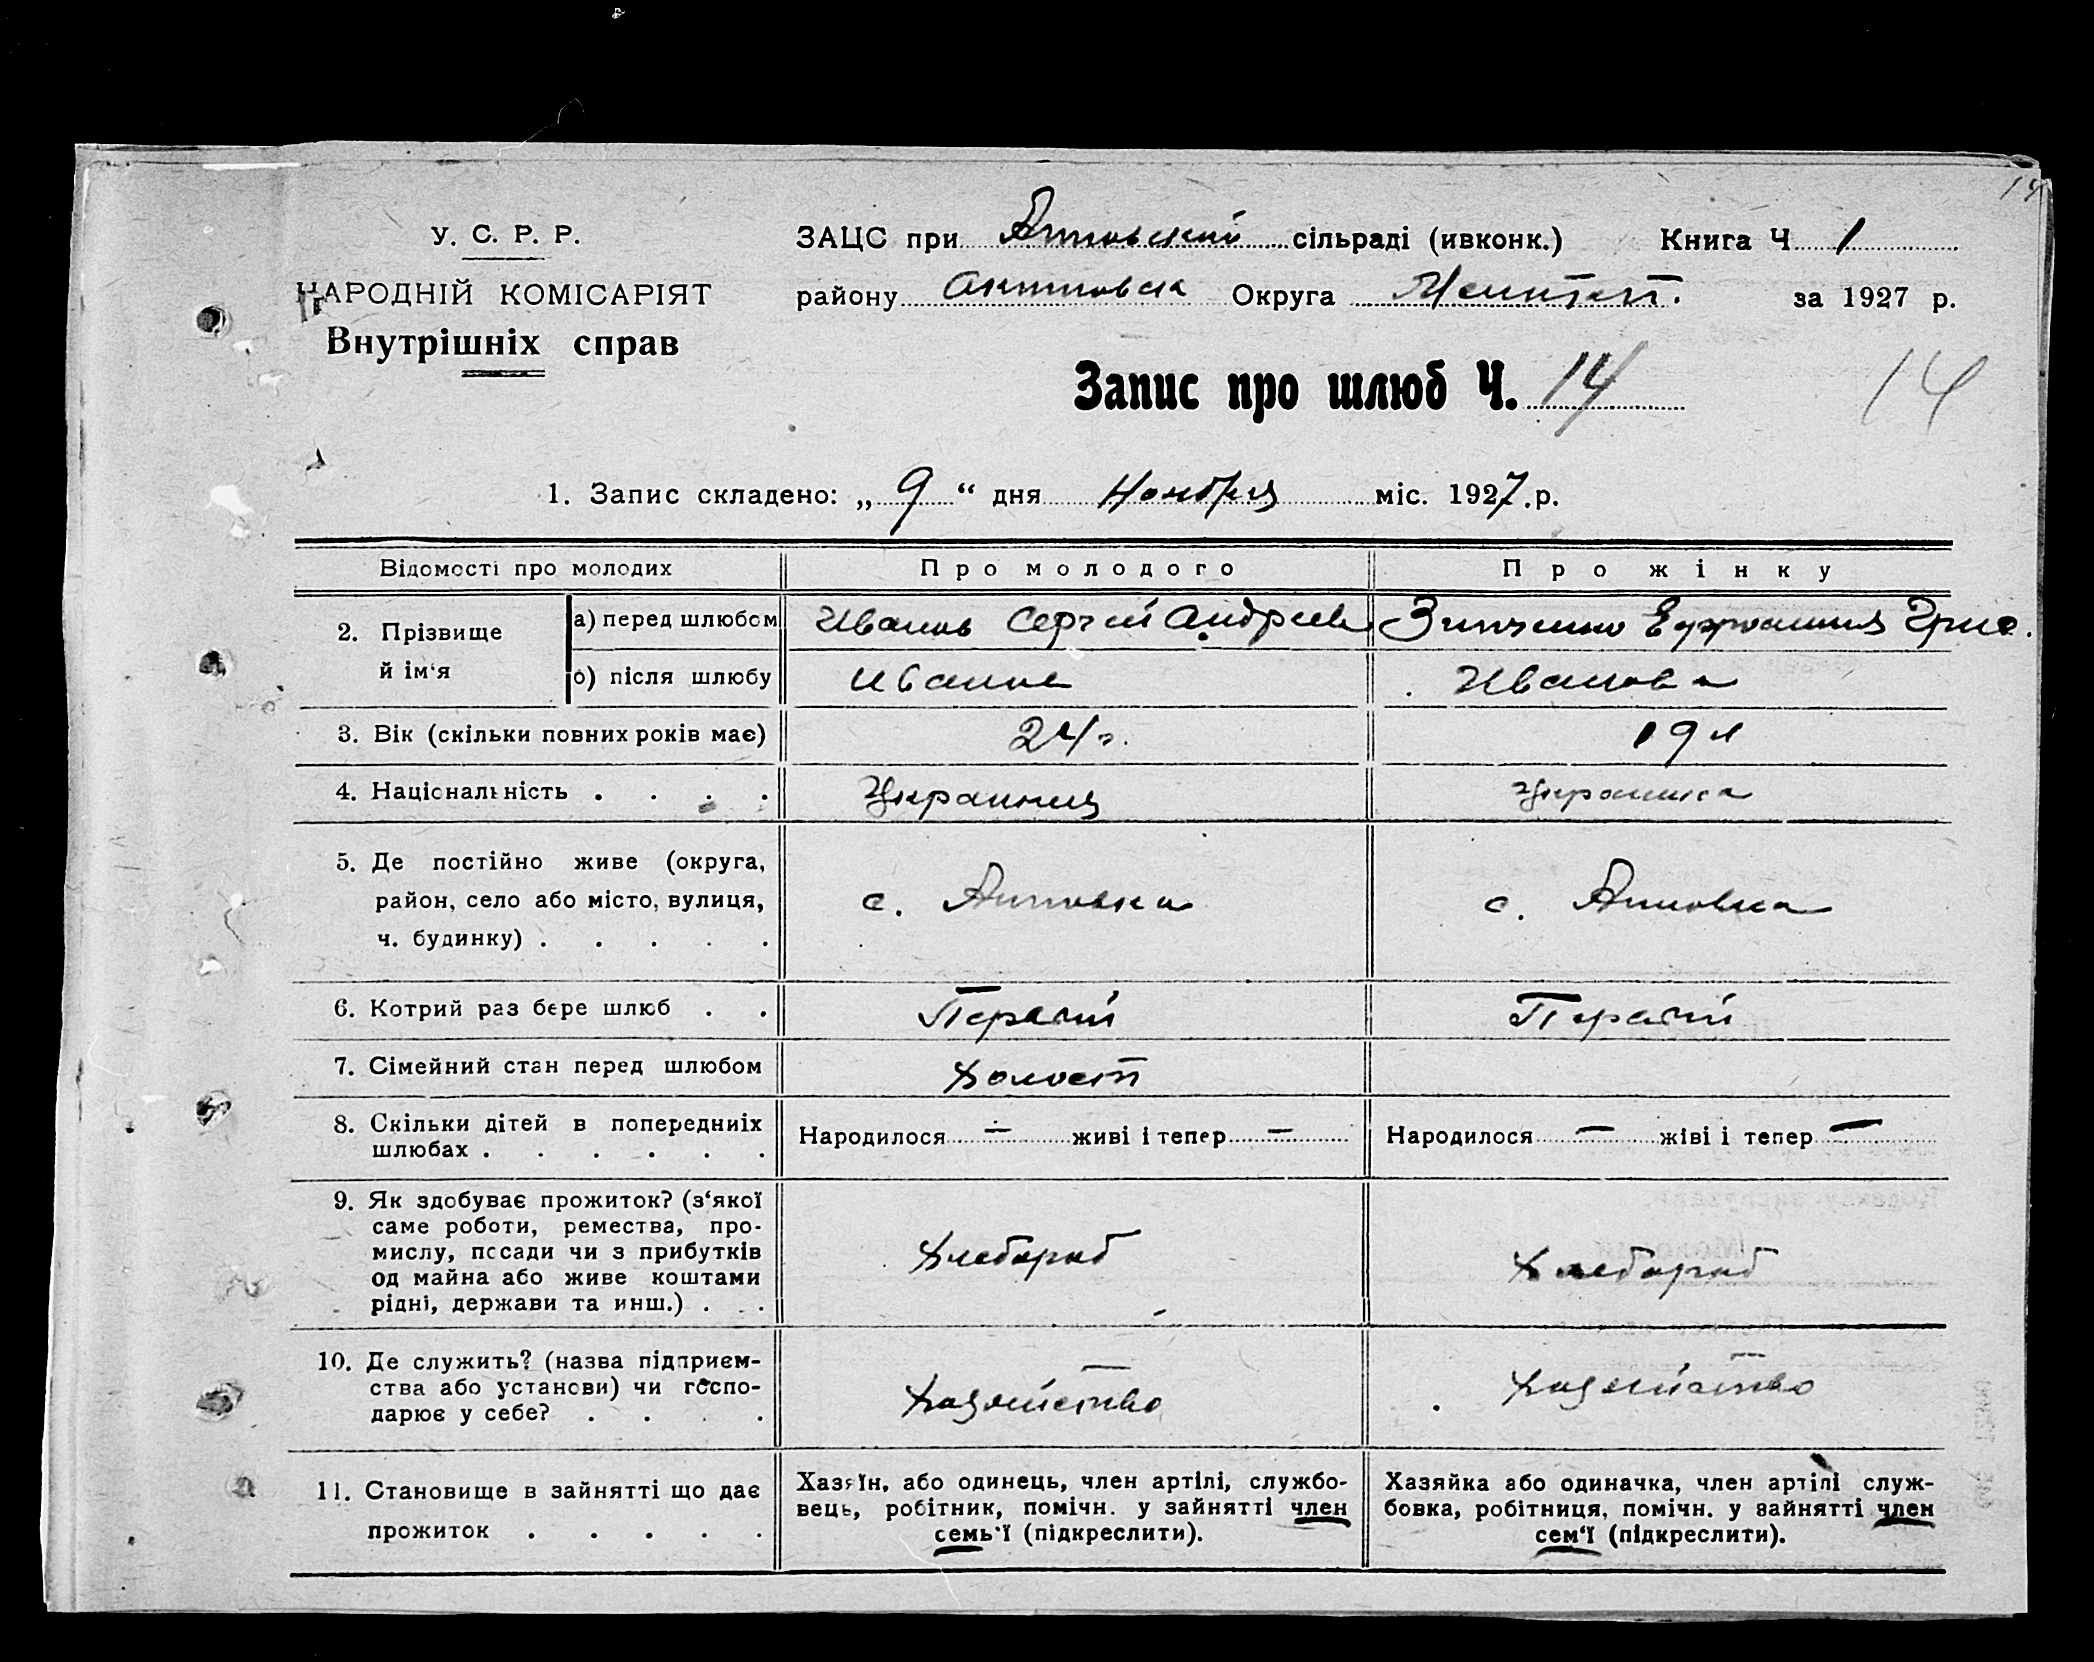 14
У. С. Р. Р.
НАРОДНІЙ КОМІСАРІЯТ
Внутрішніх справ
ЗАЦС при Анновский сільраді (ивконк.) Книга Ч 1
району Округа за 1927 р.
Запис про шлюб Ч. 14 14
1. Запис складено: „ 9 “ дня Ноября міс. 1927. р.
Відомості про молодих Про молодого Про жінку
2. Прізвище й ім‘я
а) перед шлюбом Иванов Сергей Андреев Зинченко Ефросиния Григ.
б) після шлюбу Иванов Иванова
3. Вік (скільки повних років має) 24 г. 19 л
4. Національність . . . . Украинец Украинка
5. Де постійно живе (округа,
район, село або місто, вулиця, с. Анновка с. Анновка
ч. будинку) . . . . .
6. Котрий раз бере шлюб . . Первый Первый
7. Сімейний стан перед шлюбом Холост
8. Скільки дітей в попередниіх
шлюбах . . . . . . Народилося — живі і тепер — Народилося — жіві і тепер —
9. Як здобуває прожиток? (з‘якої
саме роботи, ремества, про-
мислу, посади чи з прибутків Хлебороб Хлебороб
од майна або живе коштами
рідні, держави та инш.) . . .
10. Де служить? (назва підприєм-
ства або установи) чи госпо- Хазяйство Хазяйство
дарює у себе? . . . .
11. Становище в зайнятті що дає
прожиток . . . . .
Хазяїн, або одинець, член артілі, службо-
вець, робітник, помічн. у зайнятті член
семь‘ї (підкреслити).
Хазяйка або одиначка, член артілі служ-
бовка, робітниця, помічн. у зайнятті член
сем‘ї (підкреслити).